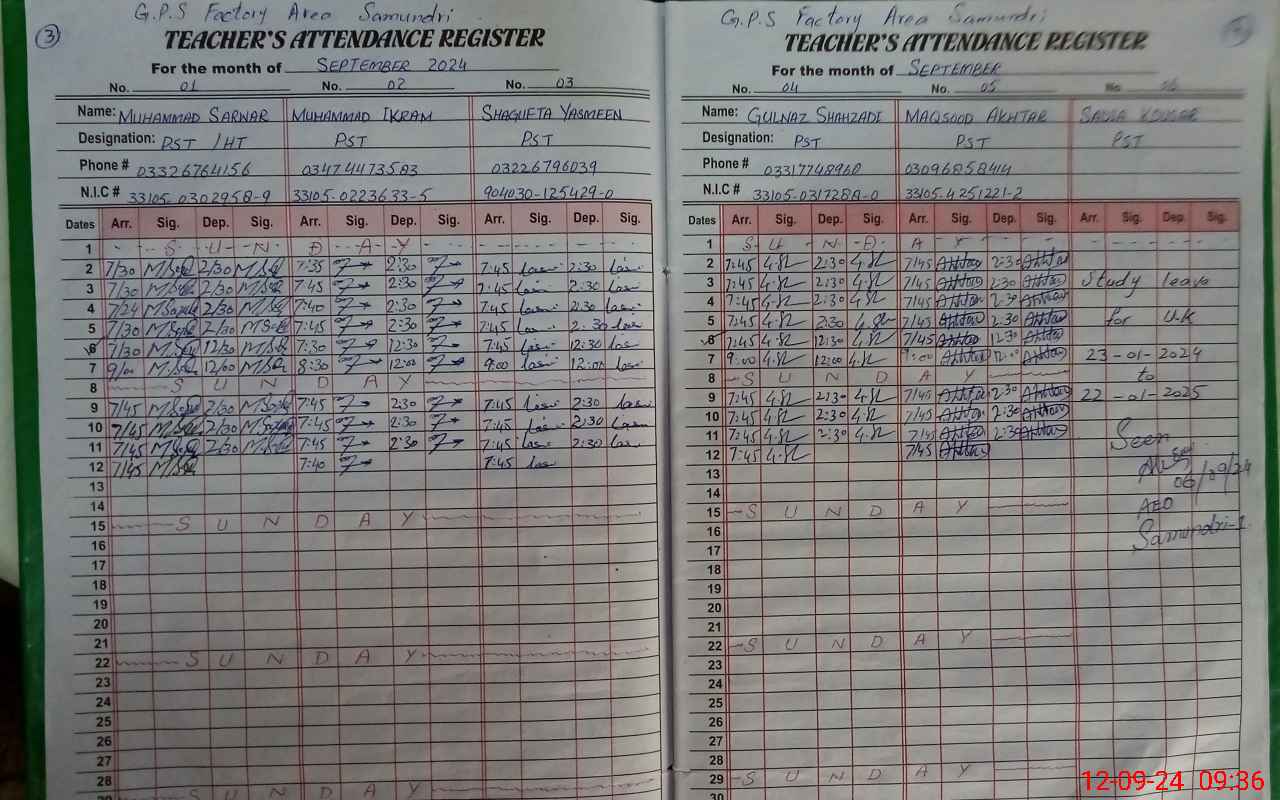 G.P.S Factory Area Samundri
3
TEACHER'S ATTENDANCE REGISTER
For the month of SEPTEMBER 2024
No. 01 No. 02 No. 03
Name: MUHAMMAD SARWAR MUHAMMAD IKRAM SHAGUFTA YASMEEN
Designation: PST / HT PST PST
Phone # 03326764156 03474473583 03226796039
N.I.C # 33105-0302958-9 33105-0223633-5 904030-125429-0
Dates Arr. Sig. Dep. Sig. Arr. Sig. Dep. Sig. Arr. Sig. Dep. Sig.
1 S U N D A Y
2 7/30 2/30 7:35 2:30 7:45 2:30
3 7/30 2/30 7:45 2:30 7:45 2:30
4 7/24 2/30 7:40 2:30 7:45 2:30
5 7/30 2/30 7:45 2:30 7:45 2:30
6 7/30 12/30 7:30 12:30 7:45 12:30
7 9/00 12/00 8:30 12:00 9:00 12:00
8 S U N D A Y
9 7/45 2/30 7:45 2:30 7:45 2:30
10 7/45 2/30 7:45 2:30 7:45 2:30
11 7/45 2/30 7:45 2:30 7:45 2:30
12 7/45 7:40 7:45
13
14
15 S U N D A Y
16
17
18
19
20
21
22 S U N D A Y
23
24
25
26
27
28
S U N D A Y
G.P.S Factory Area Samundri
TEACHER'S ATTENDANCE REGISTER
For the month of SEPTEMBER
No. 04 No. 05 No. 06
Name: GULNAZ SHAHZADI MAQSOOD AKHTAR SADIA KOUSAR
Designation: PST PST PST
Phone # 03317748960 03096858414
N.I.C # 33105-4251221-2
Dates Arr. Sig. Dep. Sig. Arr. Sig. Dep. Sig. Arr. Sig. Dep. Sig.
1 S U N D A Y
2 7:45 2:30 7/45 Akhtar 2:30 Akhtar
3 7:45 2:30 7/45 Akhtar 2:30 Akhtar Study leave
4 7:45 2:30 7/45 Akhtar 2:30 Akhtar
5 7:45 2:30 7/45 Akhtar 2:30 Akhtar for UK
6 7:45 12:30 7/45 Akhtar 12:30 Akhtar
7 9:00 12:00 9:00 Akhtar 12:00 Akhtar 23-01-2024
8 S U N D A Y to
9 7:45 2:30 7/45 Akhtar 2:30 Akhtar 22-01-2025
10 7:45 2:30 7/45 Akhtar 2:30 Akhtar
11 7:45 2:30 7/45 Akhtar 2:30 Akhtar Seen
12 7:45 7/45 Akhtar
13 06/09/24
14 AEO
15 S U N D A Y
16 Samundri-1
17
18
19
20
21
22 S U N D A Y
23
24
25
26
27
28
29 S U N D A Y
30
12-09-24 09:36